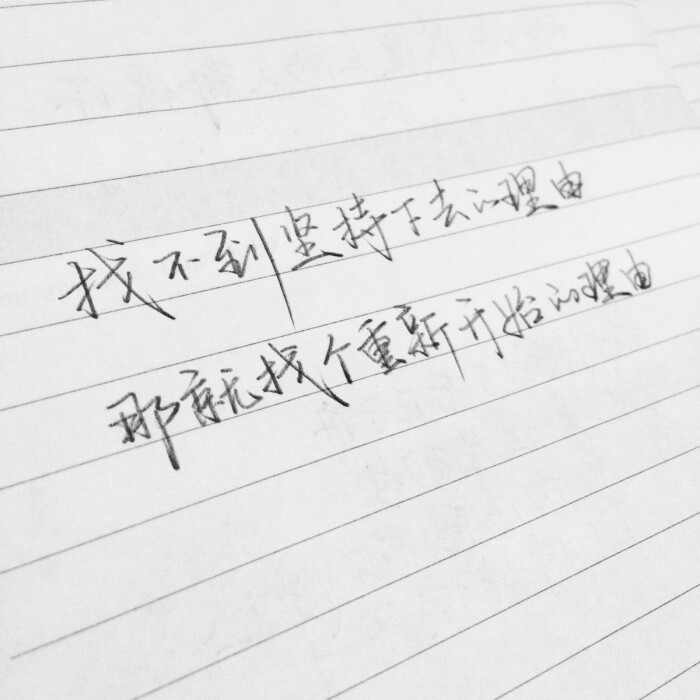 找不到坚持下去的理由
那就找个重新开始的理由